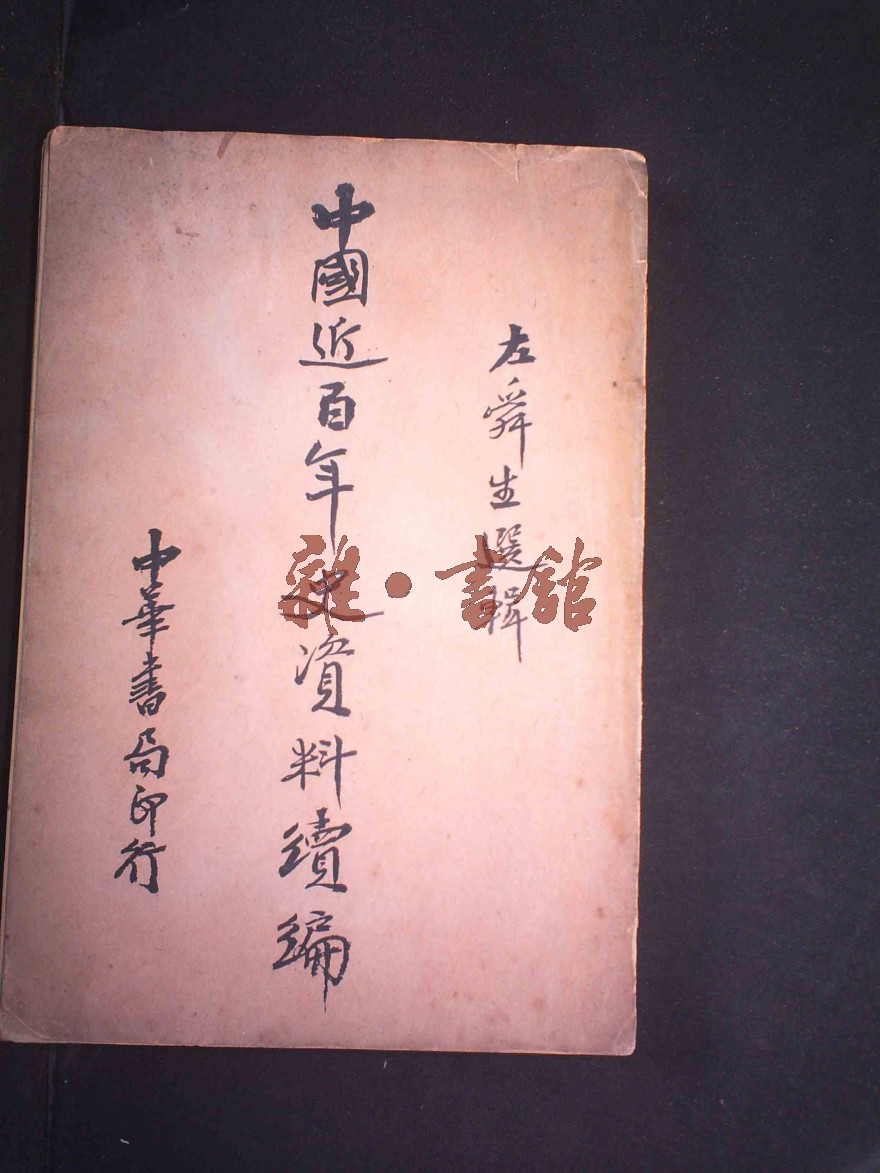 左舜生選輯
中國近百年史資料續編
中華書局印行
雜·書館